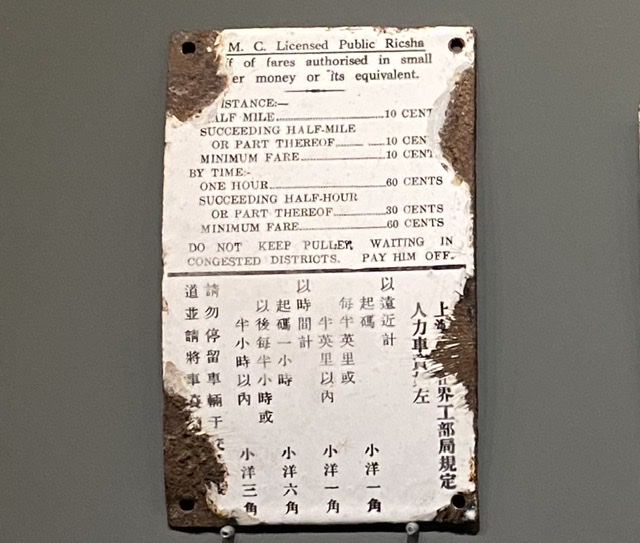 M. C. Licensed Public Ricsha
of fares authorised in small
money or its equivalent.
DISTANCE:—
HALF MILE 10 CENT
SUCCEEDING HALF-MILE
OR PART THEREOF 10 CENT
MINIMUM FARE 10 CENT
BY TIME:-
ONE HOUR 60 CENTS
SUCCEEDING HALF-HOUR
OR PART THEREOF 30 CENTS
MINIMUM FARE 60 CENTS
DO NOT KEEP PULLER WAITING IN
CONGESTED DISTRICTS. PAY HIM OFF.
上海 界工部局規定
人力車 左
以遠近計
起碼 小洋一角
每半英里或
半英里以內 小洋一角
以時間計
起碼一小時 小洋六角
以後每半小時或
半小時以內 小洋三角
請勿停留車輛于
道並請將車